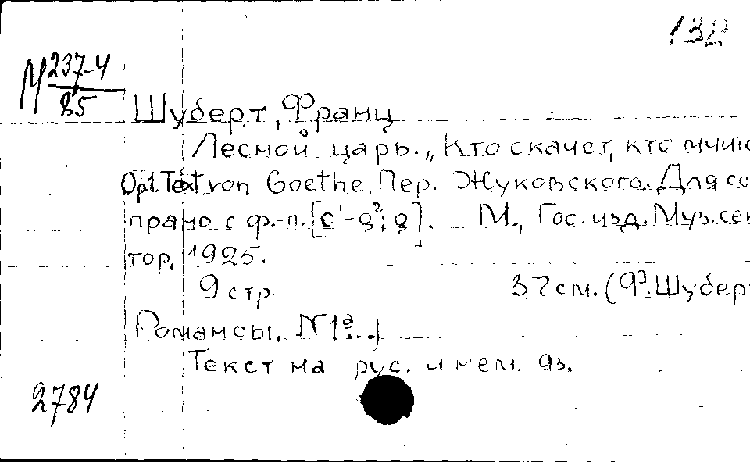 132
М 237-4
85
Шуберт, Франц
Лесной царь. „Кто скачет, кто мчит
Op.1. Text von Goethe. Пер. Жуковского. Для со
прано с ф.-п. М., Гос. изд. Муз. сек
тор, 1925.
9 стр. 37 см. (Ф. Шубер
Романсы. N 1а.)
Текст на рус. и нем. яз.
2784